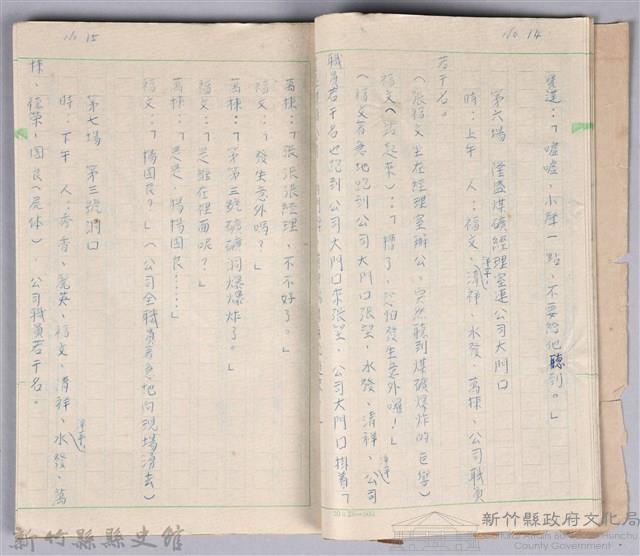 No. 14
寶蓮:「噓噓,小聲一點,不要給他聽到。」
第六場 隆盛煤礦經理室連公司大門口
時:上午 人:福文、清祥、水發、萬棟、公司職員
若干名。
(張福文坐在經理室辦公,突然聽到煤礦爆炸的巨響)
福文(站起來):「糟了,恐怕發生意外囉!」
(福文著急地跑到公司大門口張望,水發、清祥、公司
職員若干名也跑到公司大門口來張望,公司大門口掛著「
No. 15
萬棟:「張張張經理,不不好了。」
福文:「發生意外嗎?」
萬棟:「第第三號礦礦洞爆爆炸了。」
福文:「是誰在裡面呢?」
萬棟:「是是,楊楊國良……」
福文:「楊國良?」(公司全職員著急地向現場湧去)
第七場 第三號洞口
時:下午 人:秀香、麗英、福文、清祥、水發、萬
棟、福榮、國良(屍体)、公司職員若干名。
20×25=500
新竹縣縣史館
新竹縣政府文化局
Cultural Affairs Bureau of Hsinchu
County Government